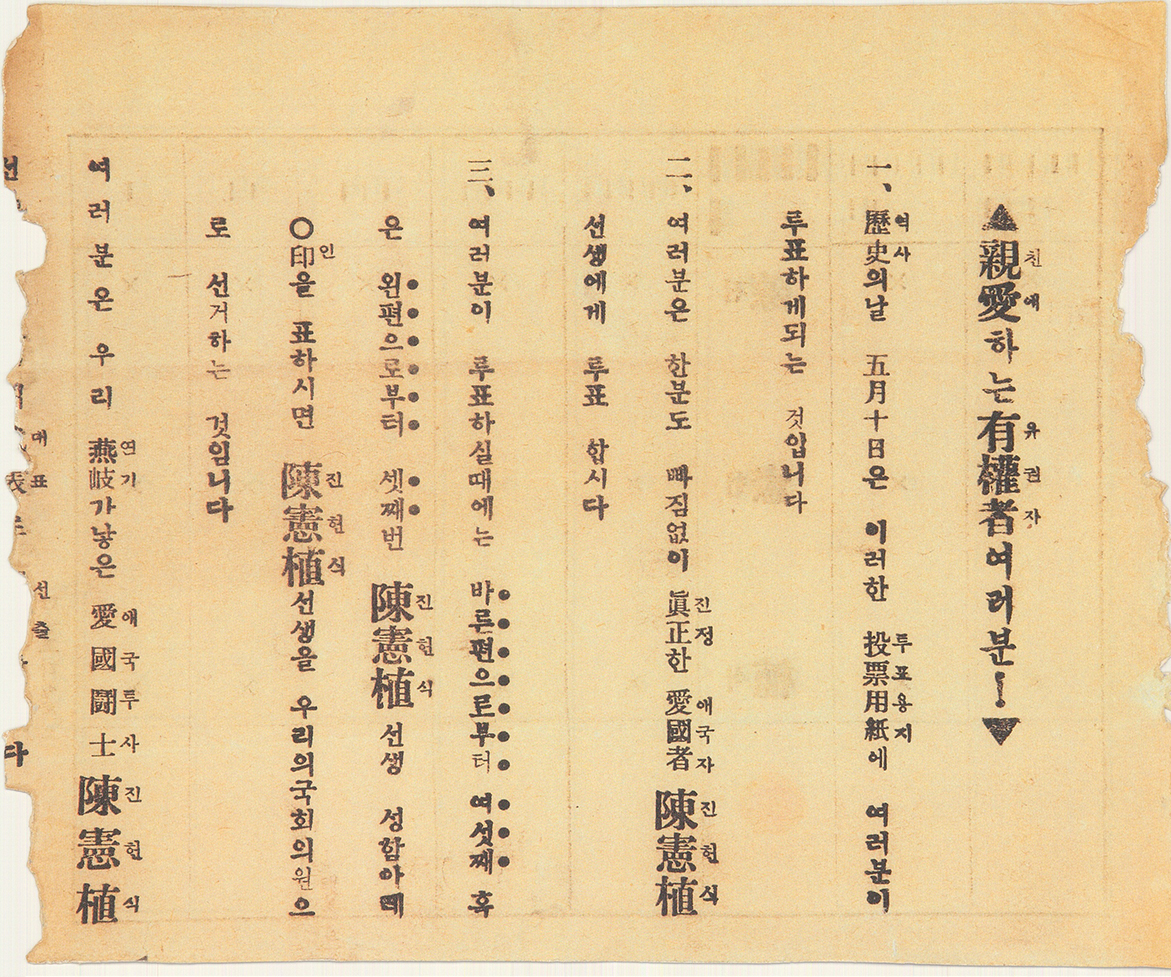 ▲親愛하는有權者여러분!▼
친애 유권자
一、歷史의날 五月十日은 이러한 投票用紙에 여러분이
역사 투표용지
투표하게되는 것입니다
二、여러분은 한분도 빠짐없이 眞正한 愛國者 陳憲植
진정 애국자 진헌식
선생에게 투표 합시다
三、여러분이 투표하실때에는 바른편으로부터 여섯째 혹
은 왼편으로부터 셋째번 陳憲植 선생 성함아래
진헌식
○印을 표하시면 陳憲植선생을 우리의국회의원으
인 진헌식
로 선거하는 것임니다
여러분은 우리 燕岐가낳은 愛國鬪士 陳憲植
연기 애국투사 진헌식
表 다
대표 선출